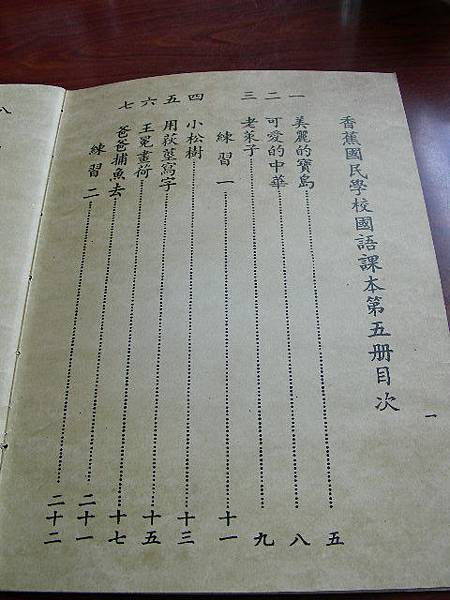 香蕉國民學校國語課本第五册目次
一
一 美麗的寶島……五
二 可愛的中華……八
三 老萊子……九
練習一……十一
四 小松樹……十三
五 用荻莖寫字……十五
六 王冕畫荷……十七
七 爸爸捕魚去……二十一
練習二……二十二
八